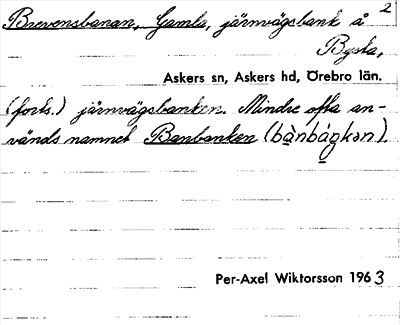 2
Brevensbanan, Gamla, järnvägsbank å
Bysta,
Askers sn, Askers hd, Örebro län.
(forts.) järnvägsbanken. Mindre ofta an-
vänds namnet Banbanken (bànbáŋkən).
Per-Axel Wiktorsson 1963